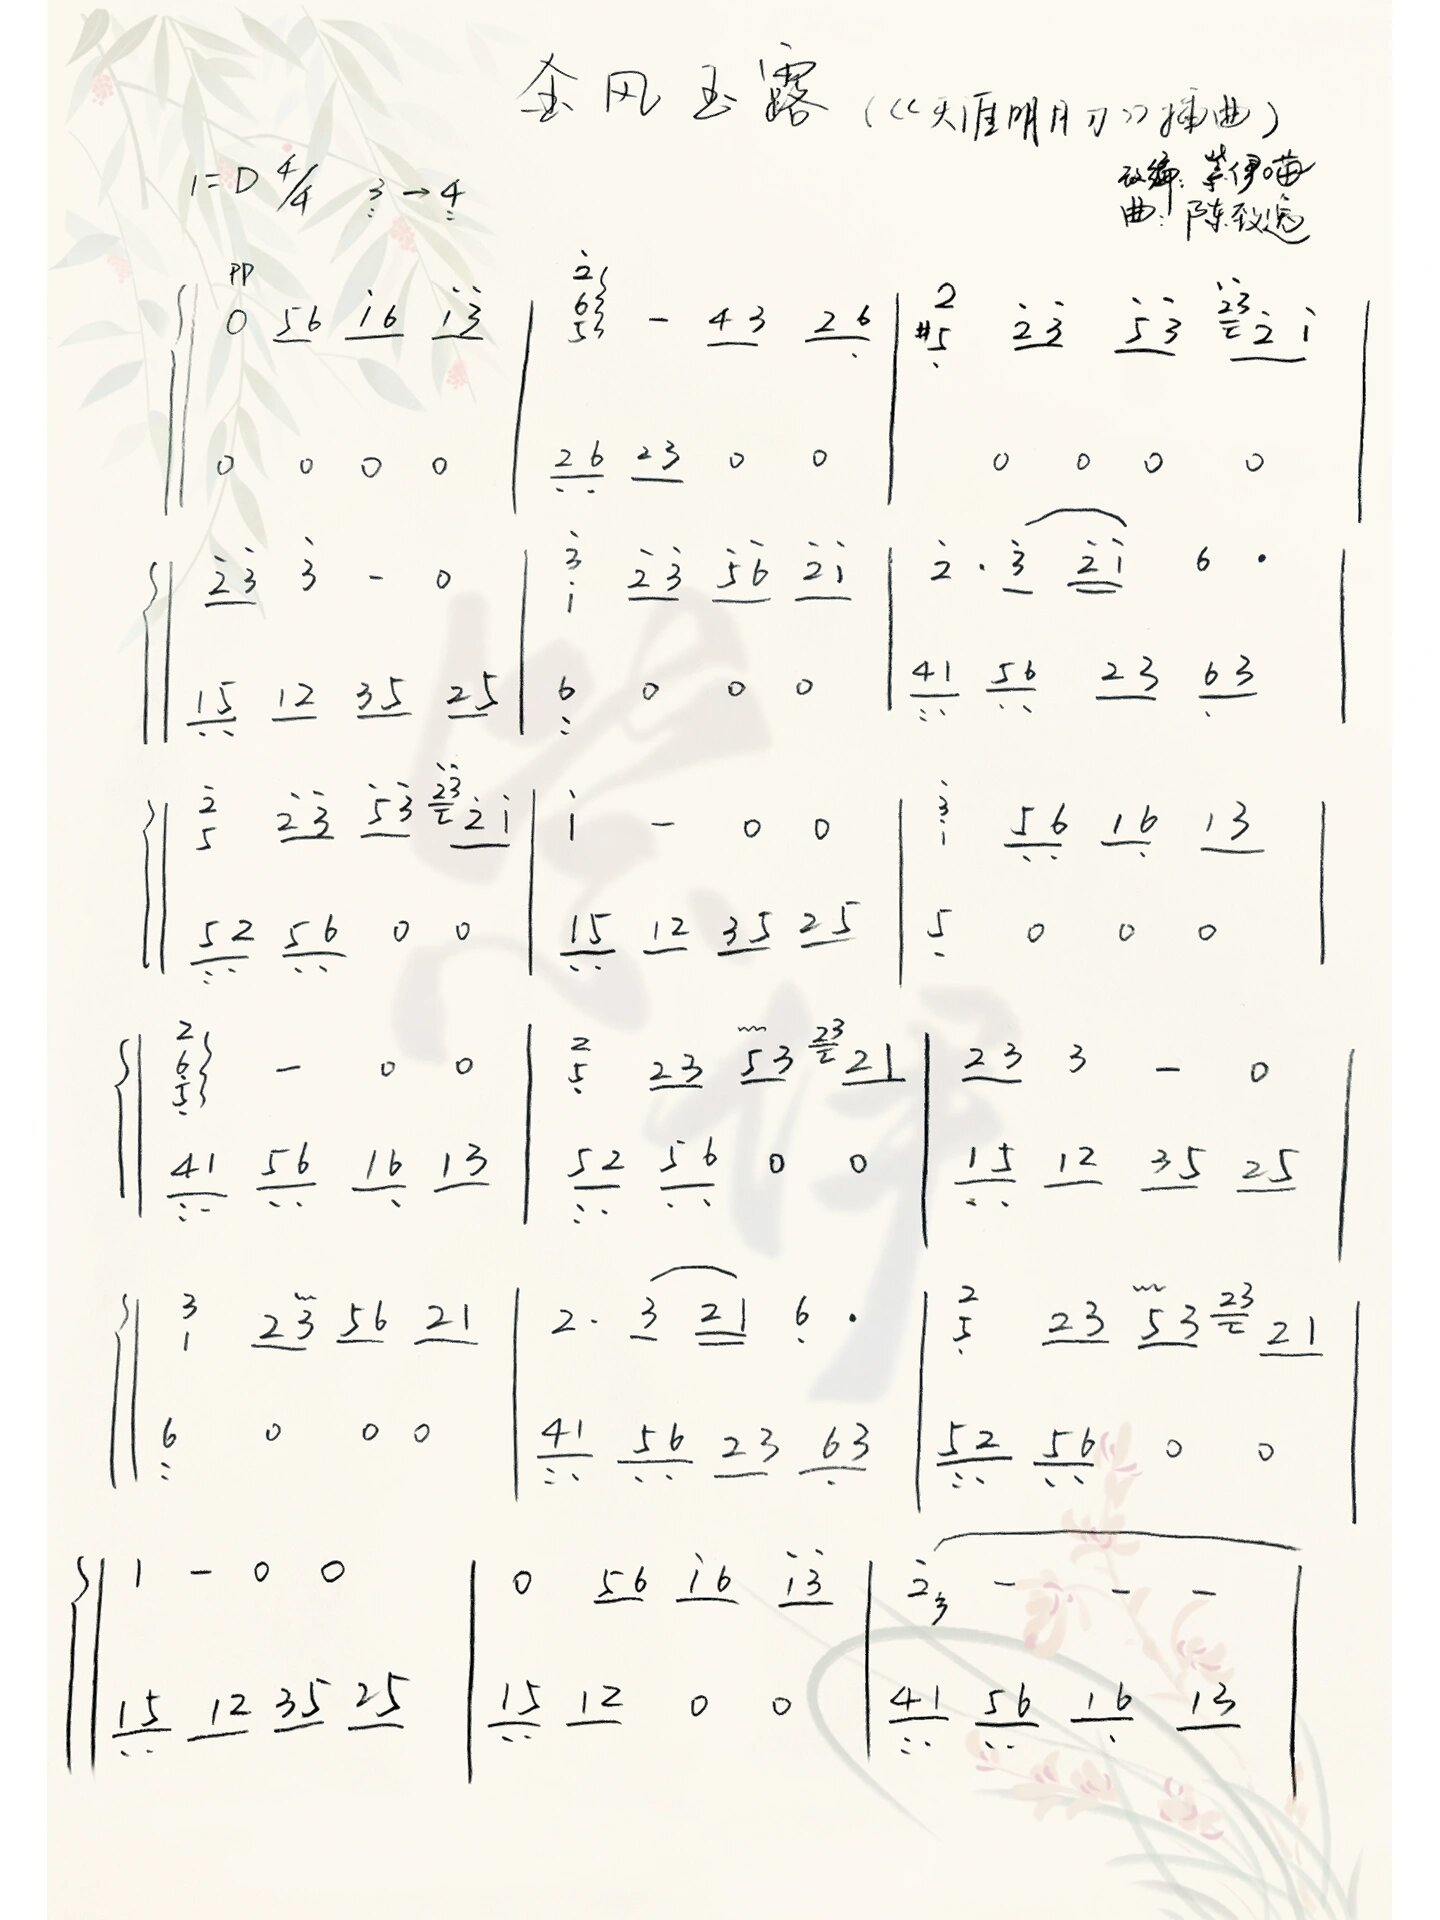 金风玉露（《天涯明月刀》插曲）
改编：紫伊喵
1=D 4/4 3→4
曲：陈致逸
pp
0 56 16 13 | 2 6 5 - 43 26 | 2 #5 23 53 23 21 |
0 0 0 0 | 26 23 0 0 | 0 0 0 0
23 3 - 0 | 3 1 23 56 21 | 2· 3 21 6· |
15 12 35 25 | 6 0 0 0 | 41 56 23 63
2 5 23 53 23 21 | 1 - 0 0 | 3 1 56 16 13 |
52 56 0 0 | 15 12 35 25 | 5 0 0 0
2 6 5 - 0 0 | 2 5 23 53 23 21 | 23 3 - 0 |
41 56 16 13 | 52 56 0 0 | 15 12 35 25
3 1 23 56 21 | 2· 3 21 6· | 2 5 23 53 23 21 |
6 0 0 0 | 41 56 23 63 | 52 56 0 0
1 - 0 0 | 0 56 16 13 | 2 3 - - - |
15 12 35 25 | 15 12 0 0 | 41 56 16 13